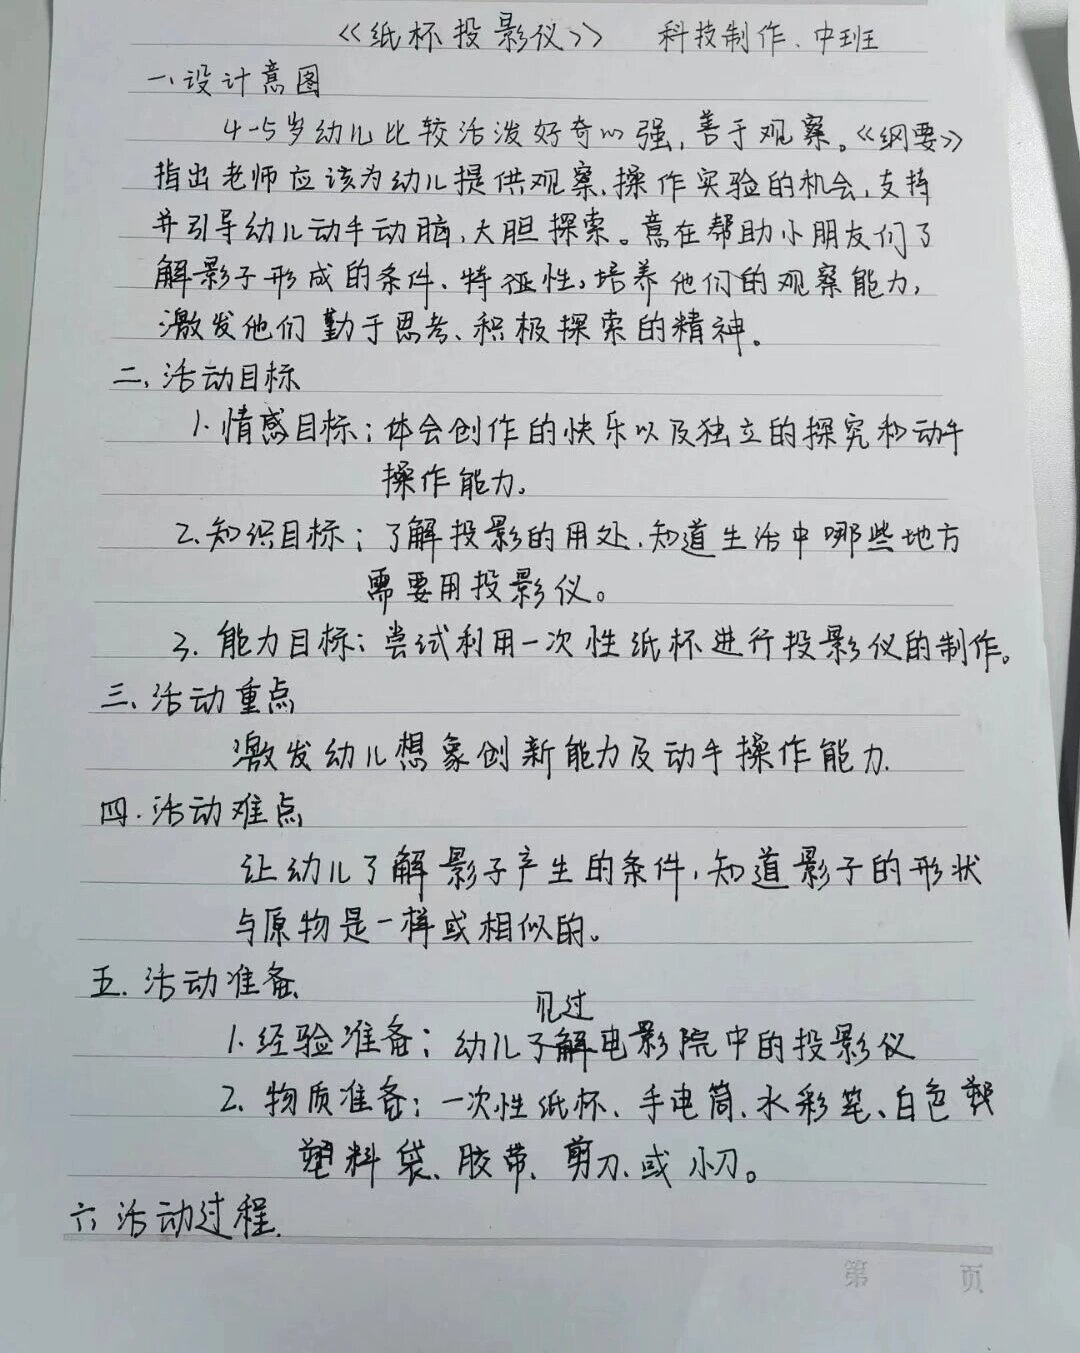 《纸杯投影仪》 科技制作、中班
一、设计意图
4-5岁幼儿比较活泼好奇心强，善于观察。《纲要》
指出老师应该为幼儿提供观察、操作实验的机会，支持
并引导幼儿动手动脑，大胆探索。意在帮助小朋友们了
解影子形成的条件、特征性，培养他们的观察能力，
激发他们勤于思考、积极探索的精神。
二、活动目标
1.情感目标：体会创作的快乐以及独立的探究和动手
操作能力。
2.知识目标：了解投影的用处，知道生活中哪些地方
需要用投影仪。
3.能力目标：尝试利用一次性纸杯进行投影仪的制作。
三、活动重点
激发幼儿想象创新能力及动手操作能力.
四.活动难点
让幼儿了解影子产生的条件，知道影子的形状
与原物是一样或相似的。
五.活动准备
见过
1.经验准备：幼儿了解电影院中的投影仪
2.物质准备：一次性纸杯、手电筒、水彩笔、白色
塑料袋、胶带、剪刀、或小刀。
六、活动过程.
第 页